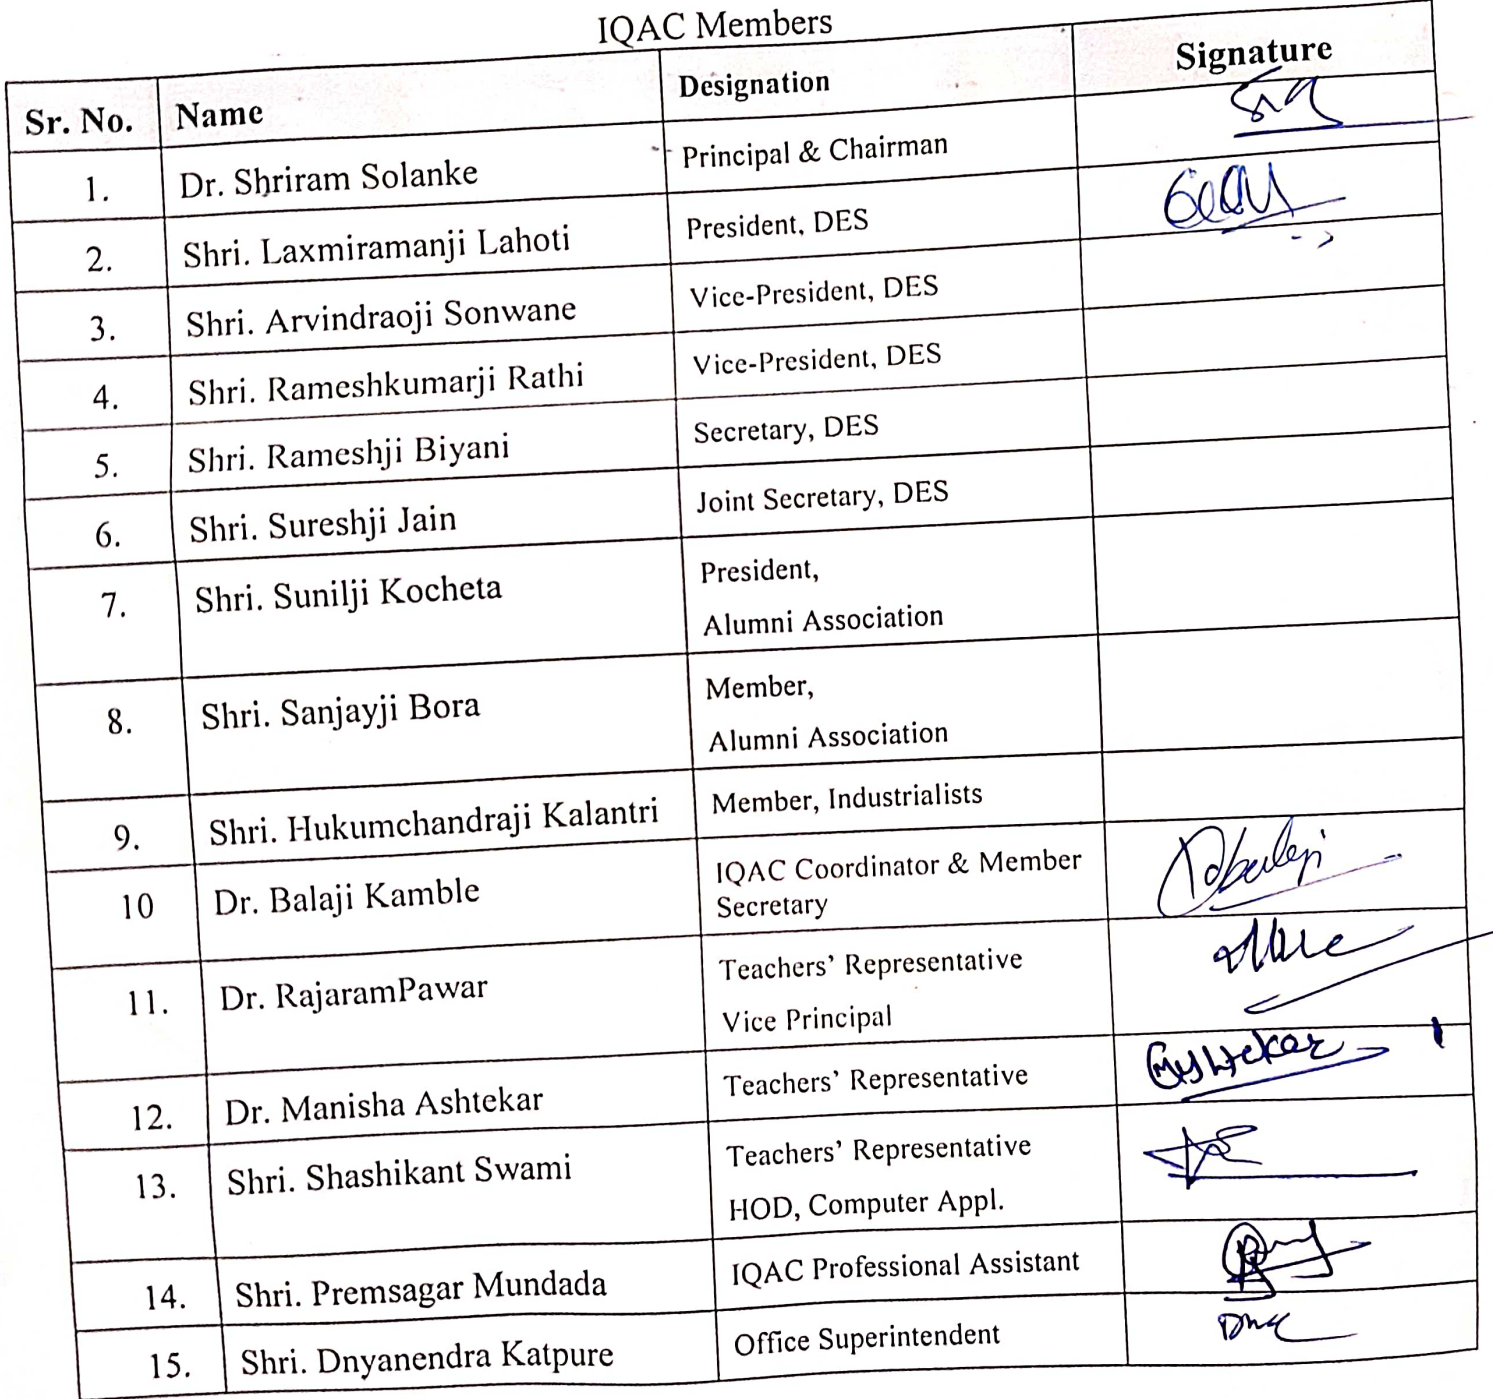 IQAC Members
Sr. No. Name Designation Signature
1. Dr. Shriram Solanke Principal & Chairman
2. Shri. Laxmiramanji Lahoti President, DES
3. Shri. Arvindraoji Sonwane Vice-President, DES
4. Shri. Rameshkumarji Rathi Vice-President, DES
5. Shri. Rameshji Biyani Secretary, DES
6. Shri. Sureshji Jain Joint Secretary, DES
7. Shri. Sunilji Kocheta President,
Alumni Association
8. Shri. Sanjayji Bora Member,
Alumni Association
9. Shri. Hukumchandraji Kalantri Member, Industrialists
10 Dr. Balaji Kamble IQAC Coordinator & Member
Secretary
11. Dr. RajaramPawar Teachers’ Representative
Vice Principal
12. Dr. Manisha Ashtekar Teachers’ Representative
13. Shri. Shashikant Swami Teachers’ Representative
HOD, Computer Appl.
14. Shri. Premsagar Mundada IQAC Professional Assistant
15. Shri. Dnyanendra Katpure Office Superintendent